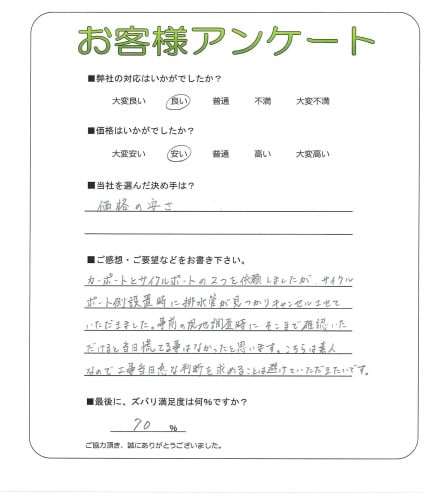 お客様アンケート
■弊社の対応はいかがでしたか？
大変良い 良い 普通 不満 大変不満
■価格はいかがでしたか？
大変安い 安い 普通 高い 大変高い
■当社を選んだ決め手は？
価格の安さ
■ご感想・ご要望などをお書き下さい。
カーポートとサイクルポートの2つを依頼しましたが、サイクル
ポート側設置時に排水管が見つかりキャンセルさせて
いただきました。事前の現地調査時にそこまで確認いた
だけると当日慌てる事はなかったと思います。こちらは素人
なので工事当日急な判断を求めることは避けていただきたいです。
■最後に、ズバリ満足度は何%ですか？
70 %
ご協力頂き、誠にありがとうございました。